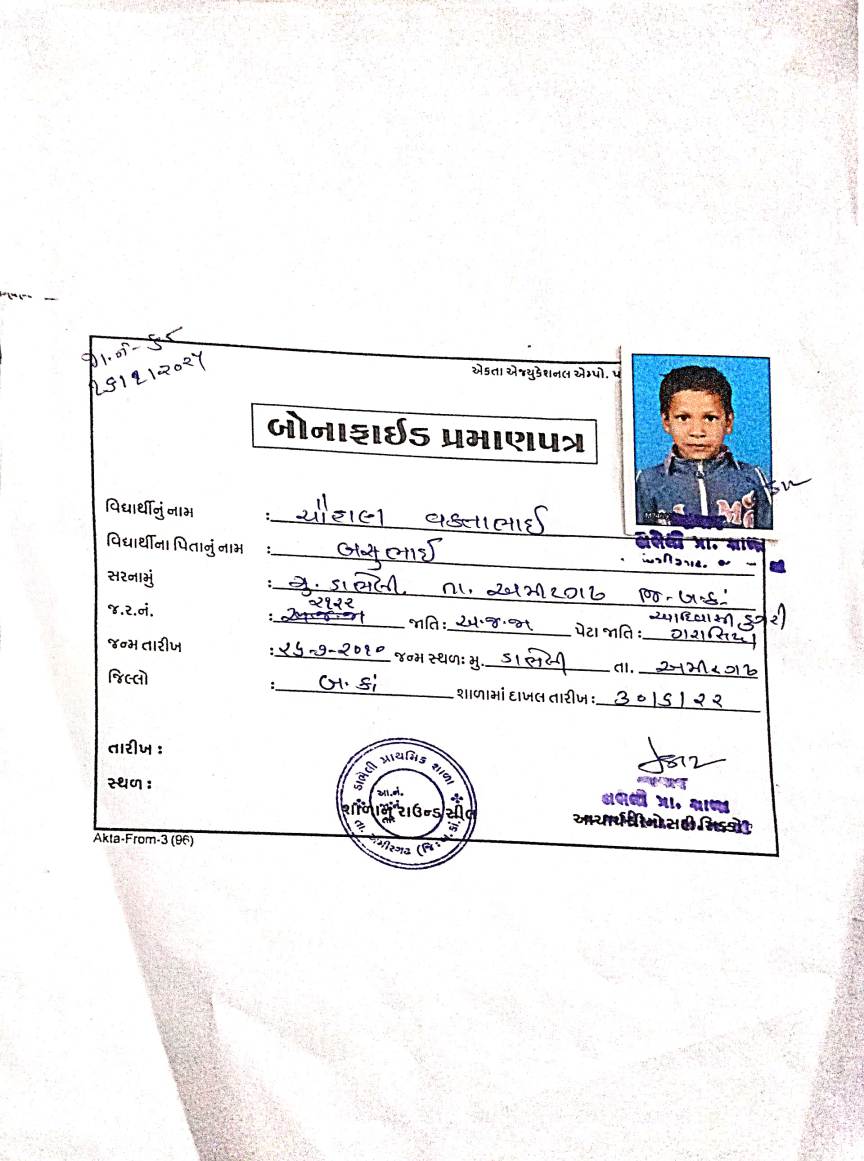 જા.નં- ૬૮
૨૬/૧૨/૨૦૨૫
એકતા એજ્યુકેશનલ એમ્પો. પ
બોનાફાઈડ પ્રમાણપત્ર
વિદ્યાર્થીનું નામ : ચૌહાણ વક્તાભાઈ
વિદ્યાર્થીના પિતાનું નામ : બચુભાઈ
સરનામું : મુ. ડાભેલી. તા. અમીરગઢ જિ- બ.કાં
જ.ર.નં. : ૨૧૨૨ જાતિ : અ.જ.જા પેટા જાતિ : આદિવાસી ડુંગરી ગરાસિયા
જન્મ તારીખ : ૨૫-૭-૨૦૧૦ જન્મ સ્થળઃ મુ. ડાભેલી તા. અમીરગઢ
જિલ્લો : બ. કાં શાળામાં દાખલ તારીખ : ૩૦/૬/૨૨
તારીખ :
સ્થળ :
ડાભેલી પ્રાથમિક શાળા
આ.નં.
શાળાનું રાઉન્ડ સીલ
તા. અમીરગઢ (જિ. બ.કાં.)
ડાભેલી પ્રા. શાળા
આચાર્યશ્રીનો સહી સિક્કો
Akta-From-3 (96)